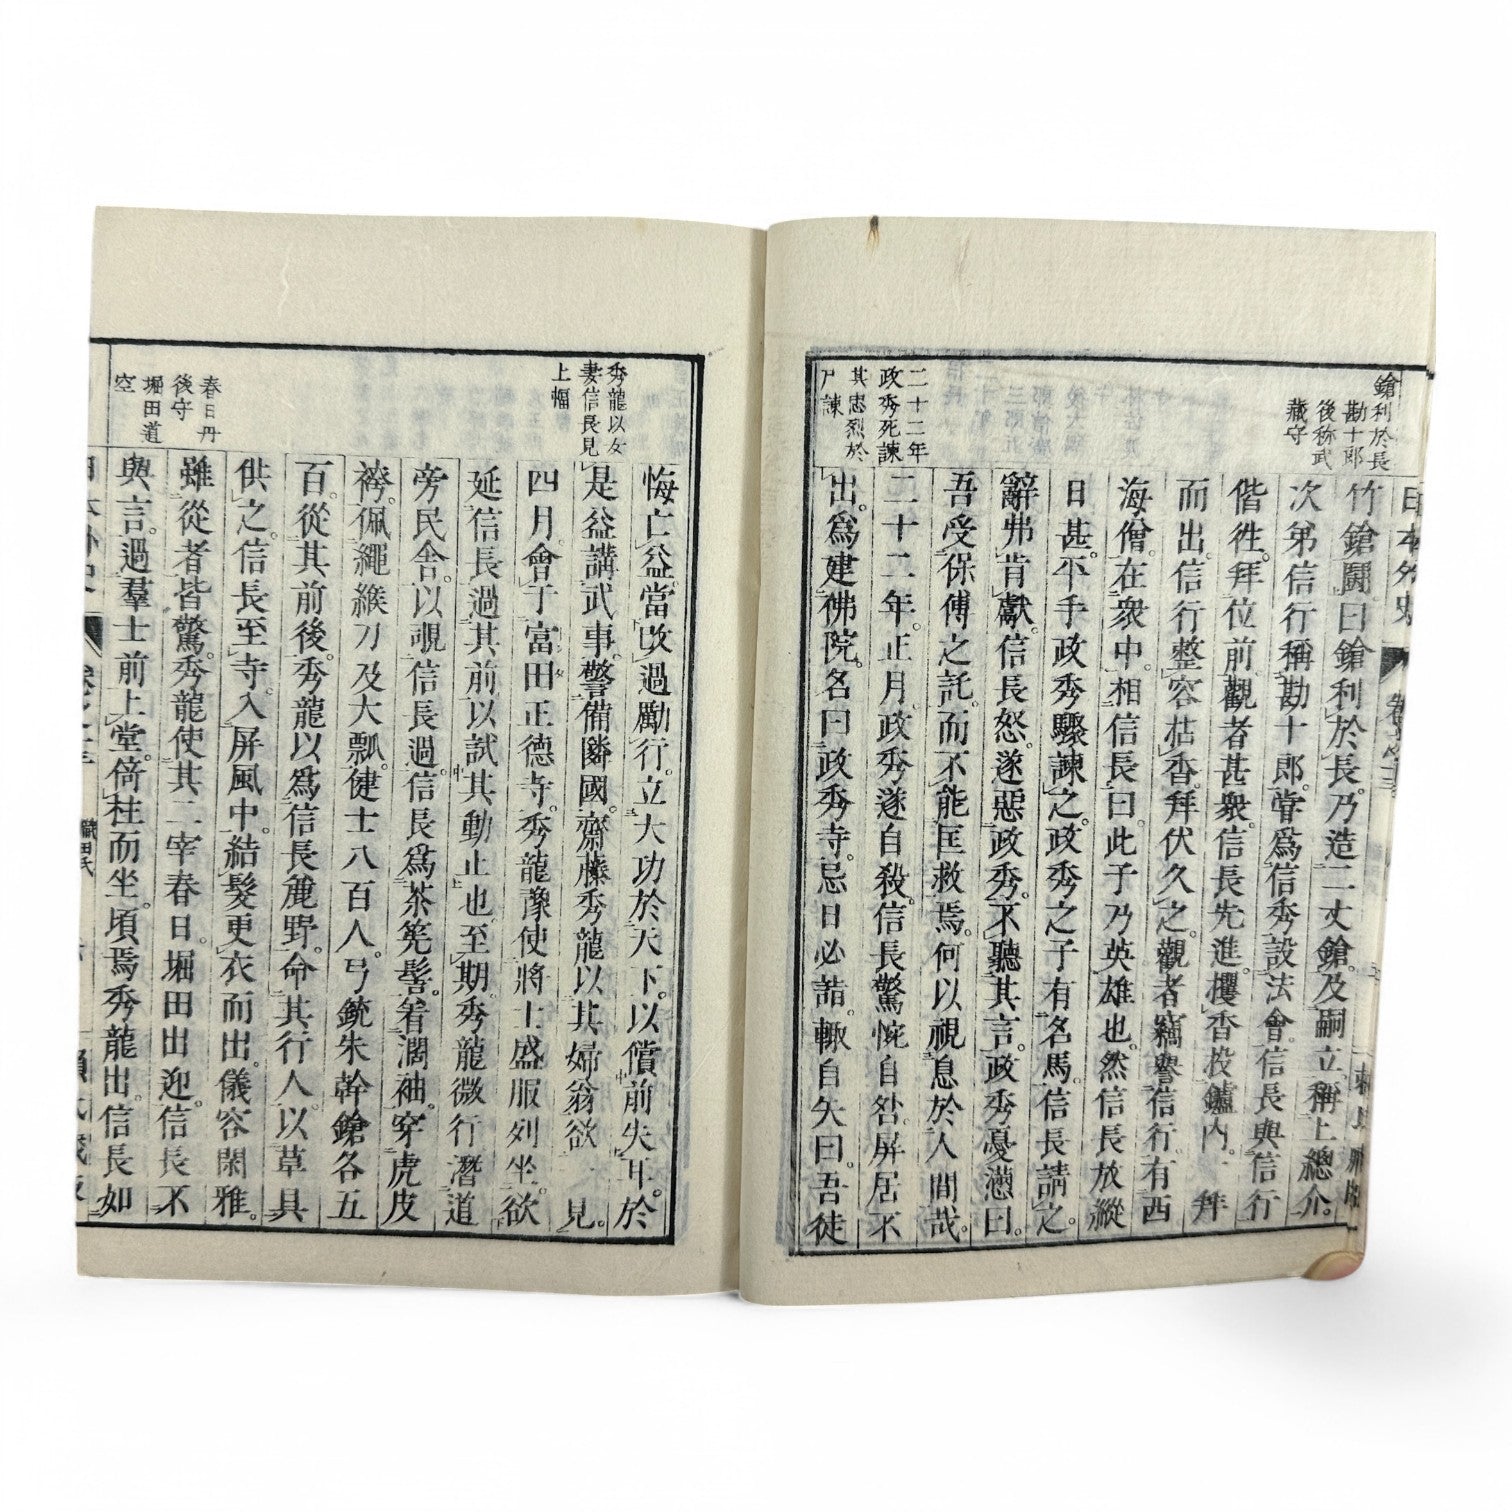 鎗利於長
勘十郎
後称武
藏守
二十二年
政秀死諫
其忠烈於
尸諫
日本外史
竹鎗鬪曰鎗利於長乃造二丈鎗及嗣立稱上總介
次弟信行稱勘十郎甞爲信秀設法會信長與信行
偕徃拜位前觀者甚衆信長先進攫香投鑪内一拜
而出信行整容拈香拜伏久之觀者竊譽信行有西
海僧在衆中相信長曰此子乃英雄也然信長放縱
日甚平手政秀驟諫之政秀之子有名馬信長請之
辭弗肯獻信長怒遂惡政秀不聽其言政秀憂懣曰
吾受保傅之託而不能匡救焉何以視息於人間哉
二十二年正月政秀遂自殺信長驚惋自咎屏居不
出爲建佛院名曰政秀寺忌日必詣輙自矢曰吾徒
秀龍以女
妻信長見
上幅
春日丹
後守
堀田道
空
悔亡益當改過勵行立大功於天下以償前失耳於
是益講武事警備隣國齋藤秀龍以其婦翁欲一見
四月會于富田正德寺秀龍豫使將士盛服列坐欲
延信長過其前以試其動止也至期秀龍微行潛道
旁民舍以覗信長過信長爲茶筅髻着濶袖穿虎皮
袴佩繩緱刀及大瓢健士八百人弓銃朱幹鎗各五
百從其前後秀龍以爲信長麁野命其行人以草具
供之信長至寺入屏風中結髮更衣而出儀容閑雅
雖從者皆驚秀龍使其二宰春日堀田出迎信長不
與言過羣士前上堂倚柱而坐頃焉秀龍出信長如
織田氏